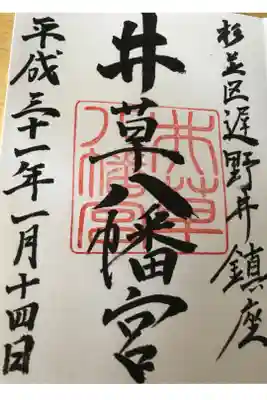 杉並区遅野井鎮座
井草八幡宮
井草八幡宮
平成三十一年一月十四日